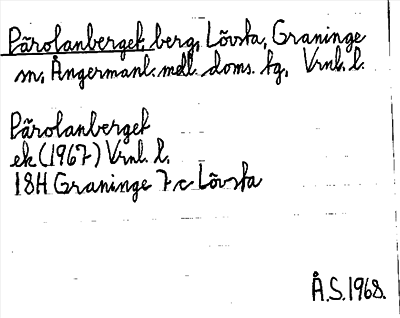 Pärolanberget, berg, Lövsta, Graninge
sn, Ångermanl. mell. doms. tg, Vrnl. l.
Pärolanberget
ek (1967) Vrnl. l.
18H Graninge 7 c Lövsta
Å.S. 1968.